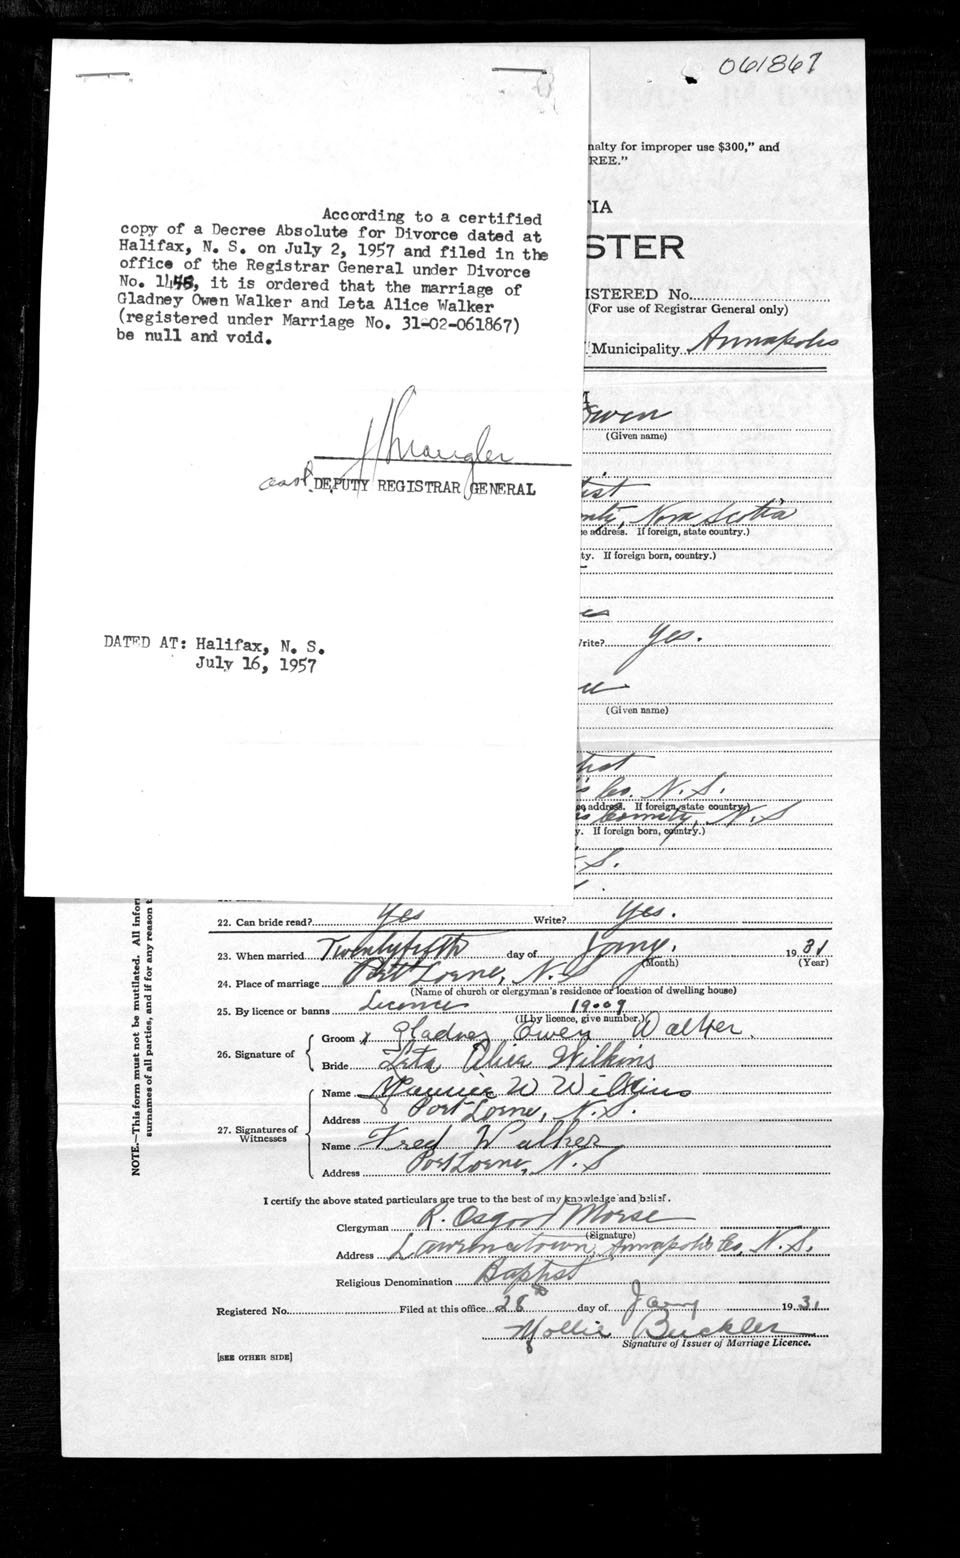 061867
nalty for improper use $300," and
REE."
TIA
STER
ISTERED No.
(For use of Registrar General only)
Municipality Annapolis
According to a certified
copy of a Decree Absolute for Divorce dated at
Halifax, N. S. on July 2, 1957 and filed in the
office of the Registrar General under Divorce
No. , it is ordered that the marriage of
Gladney Owen Walker and Leta Alice Walker
(registered under Marriage No. 31-02-061867)
be null and void.
DEPUTY REGISTRAR GENERAL
DATED AT: Halifax, N. S.
July 16, 1957
Owen
(Given name)
tist
nty, Nova Scotia
e address. If foreign, state country.)
ty. If foreign born, country.)
rite? Yes.
(Given name)
tist
s Co. N.S.
address. If foreign, state country.)
s County, N.S
y. If foreign born, country.)
.S.
NOTE.—This form must not be mutilated. All infor
surnames of all parties, and if for any reason t
22. Can bride read? Yes Write? Yes.
23. When married Twentyfifth day of Jany. 1931
(Month) (Year)
24. Place of marriage Port Lorne, N.S
(Name of church or clergyman's residence or location of dwelling house)
25. By licence or banns Licence 19009
(If by licence, give number.)
26. Signature of
Groom x Gladney Owen Walker.
Bride Leta Alice Wilkins
27. Signatures of Witnesses
Name W Wilkins
Address Port Lorne, N.S.
Name Fred Walker
Address Port Lorne, N.S
I certify the above stated particulars are true to the best of my knowledge and belief.
Clergyman R. Osgood Morse
(Signature)
Address Lawrencetown, Annapolis Co, N.S.
Religious Denomination Baptist
Registered No. Filed at this office 28 day of Jany 1931
Mollie Buckler
Signature of Issuer of Marriage Licence.
[SEE OTHER SIDE]